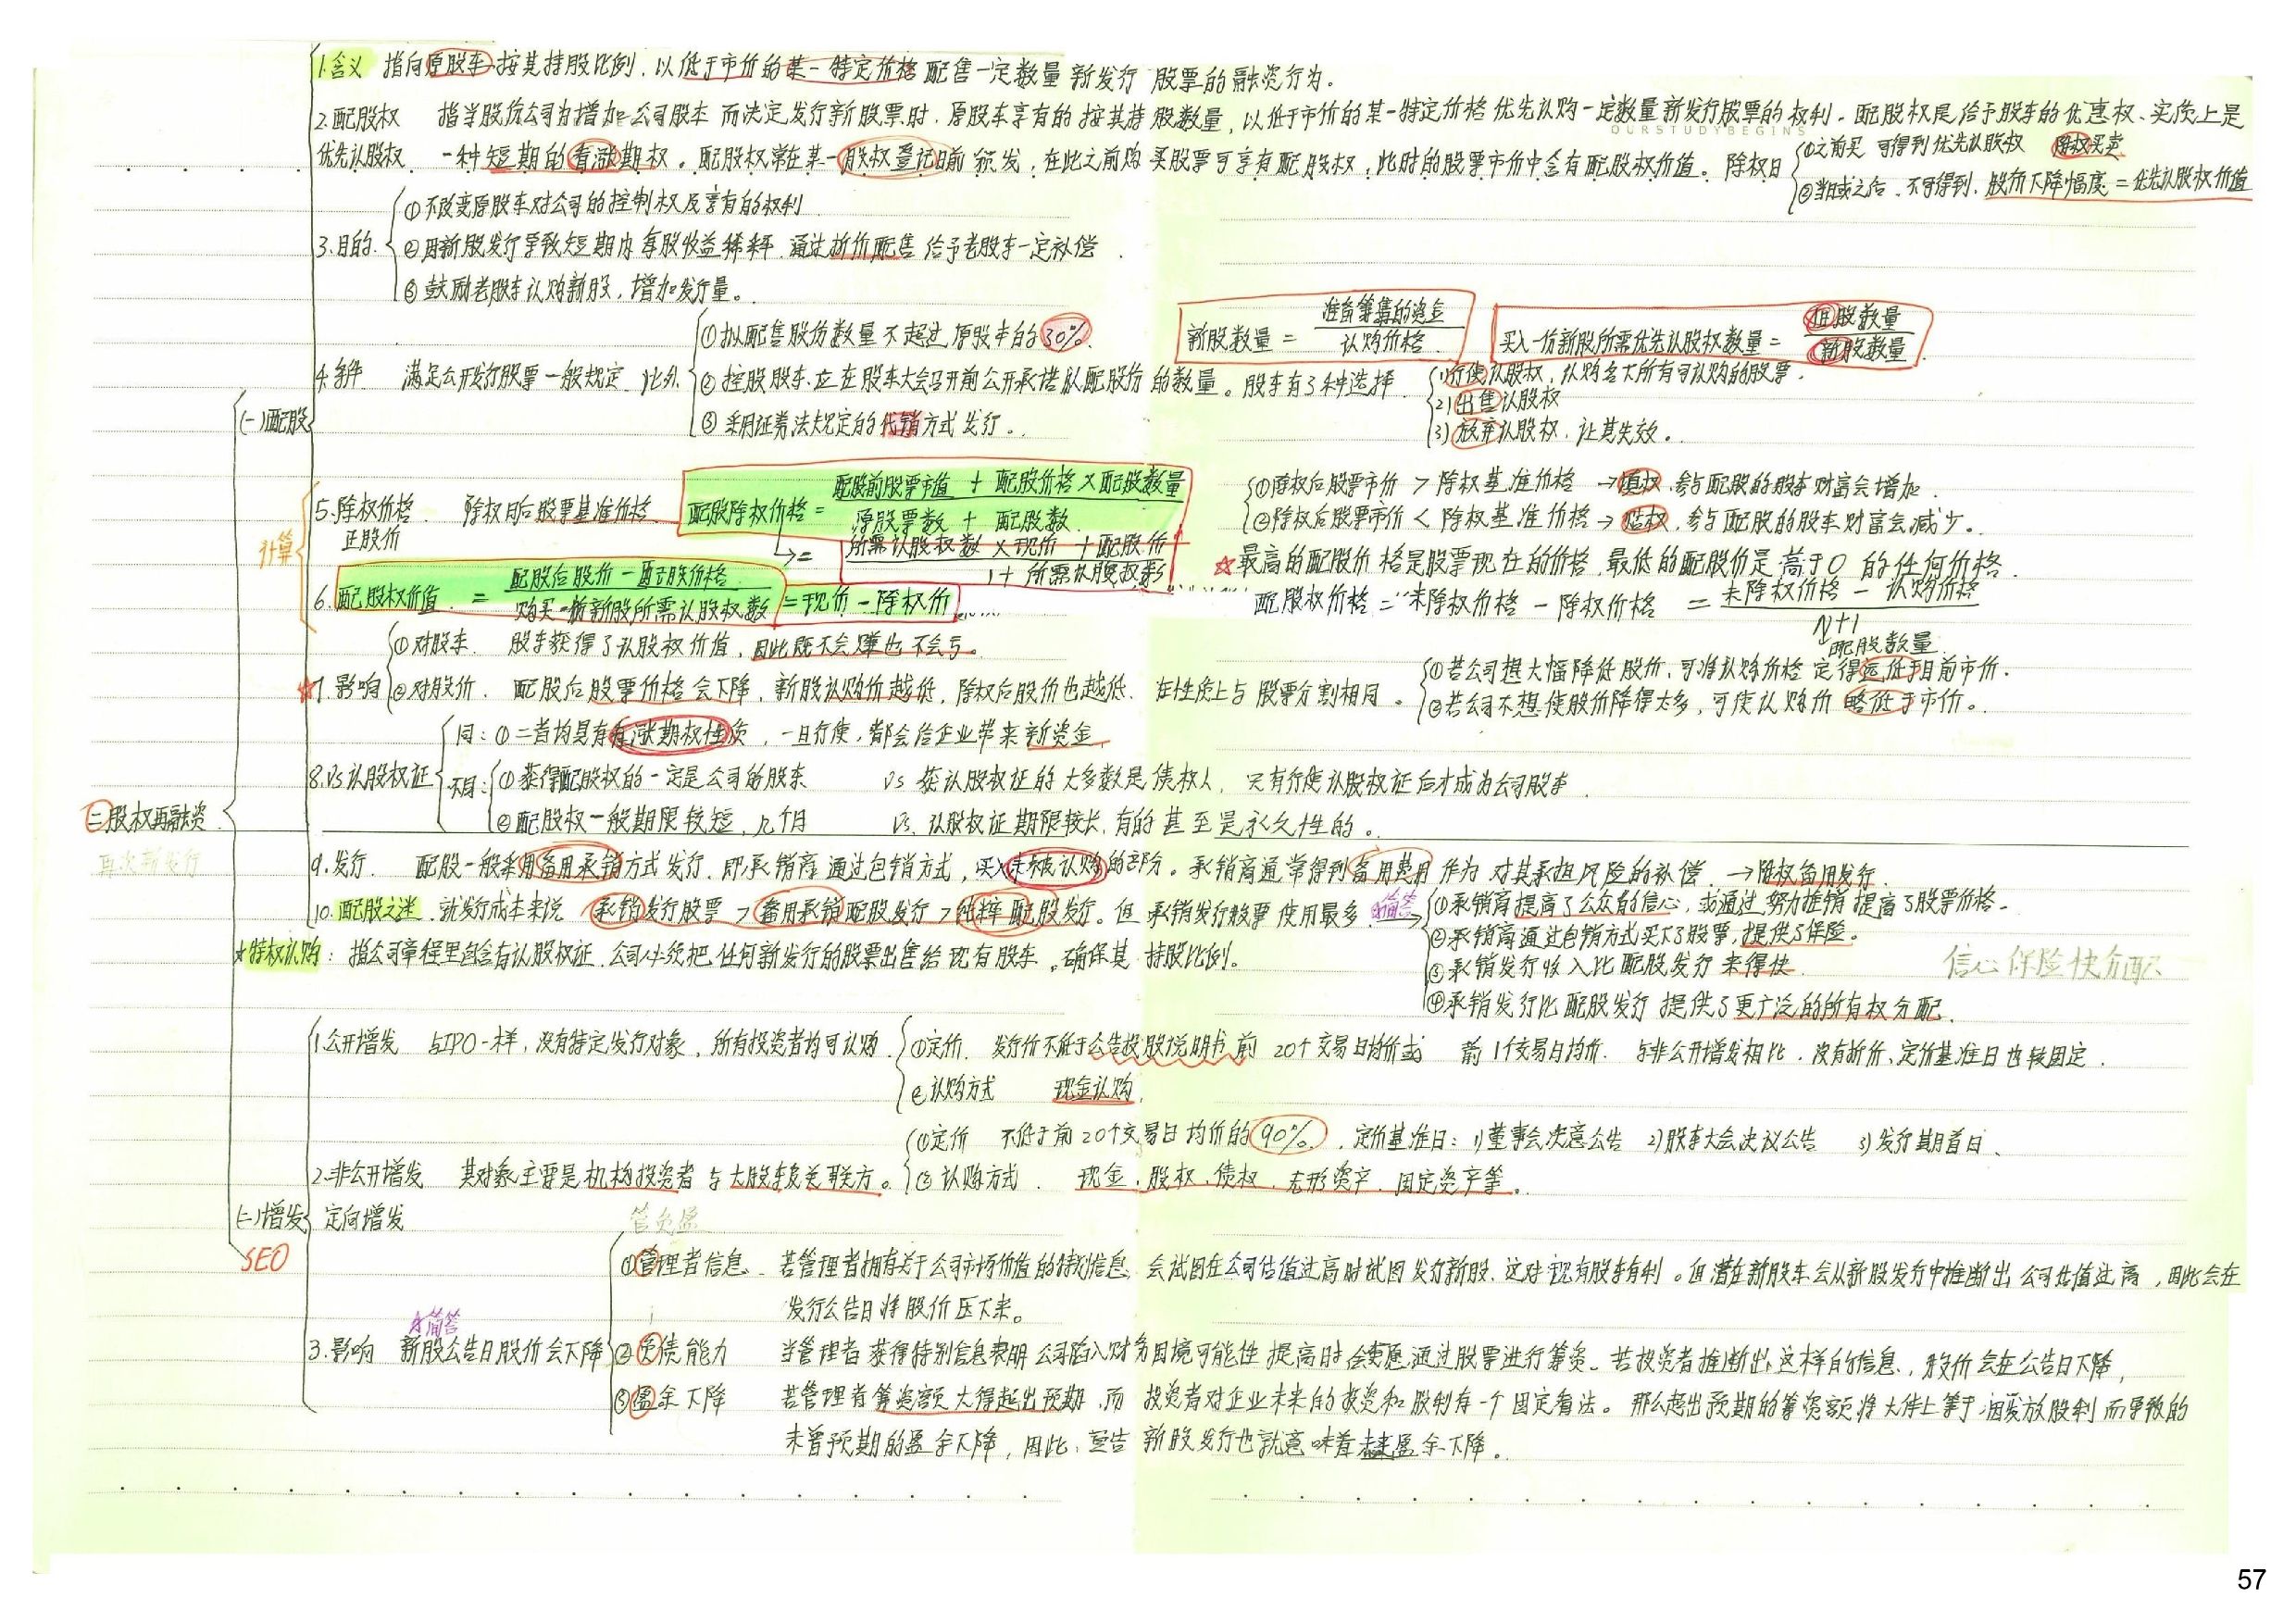 1.含义 指向原股东按其持股比例，以低于市价的某一特定价格配售一定数量新发行股票的融资行为。
2.配股权 指当股份公司为增加公司股本而决定发行新股票时，原股东享有的按其持股数量，以低于市价的某一特定价格优先认购一定数量新发行股票的权利。配股权是给予股东的优惠权、实质上是
OURSTUDYBEGINS
优先认股权 一种短期的看涨期权。配股权常在某一股权登记日前颁发，在此之前购买股票可享有配股权，此时的股票市价中含有配股权价值。除权日
①之前买 可得到优先认股权 除权买卖
②当日或之后，不可得到，股价下降幅度=优先认股权价值
3.目的
①不改变原股东对公司的控制权及享有的权利
②因新股发行导致短期内每股收益稀释，通过折价配售给予老股东一定补偿
③鼓励老股东认购新股，增加发行量。
新股数量 = 准备筹集的资金 / 认购价格
买入一份新股所需优先认股权数量 = 旧股数量 / 新股数量
4.条件 满足公开发行股票一般规定，此外
①拟配售股份数量不超过原股本的30%
②控股股东应在股东大会召开前公开承诺认配股份的数量。
③采用证券法规定的代销方式发行。
股东有3种选择
1)行使认股权，认购名下所有可认购的股票。
2)出售认股权
3)放弃认股权，让其失效。
(一)配股
计算
5.除权价格 除权日后股票基准价格
正股价
配股除权价格 = 配股前股票市值 + 配股价格×配股数量 / 原股票数 + 配股数
= 所需认股权数×现价+配股价 / 1+所需认股权数
①除权后股票市价 > 除权基准价格 → 填权，参与配股的股东财富会增加。
②除权后股票市价 < 除权基准价格 → 贴权，参与配股的股东财富会减少。
☆最高的配股价格是股票现在的价格，最低的配股价是高于0的任何价格。
6.配股权价值 = 配股后股价-配股价格 / 购买一份新股所需认股权数 = 现价-除权价
配股权价格 = 未除权价格 - 除权价格 = 未除权价格 - 认购价格 / N+1
配股数量
☆7.影响
①对股东 股东获得了认股权价值，因此既不会赚也不会亏。
②对股价 配股后股票价格会下降，新股认购价越低，除权后股价也越低。在性质上与股票分割相同。
①若公司想大幅降低股价，可准认购价格定得远低于目前市价。
②若公司不想使股价降得太多，可使认购价略低于市价。
8.vs认股权证
同：①二者均具有看涨期权性质，一旦行使，都会给企业带来新资金。
不同：①获得配股权的一定是公司的股东 vs 获认股权证的大多数是债权人，只有行使认股权证后才成为公司股东
②配股权一般期限较短，几个月 vs. 认股权证期限较长，有的甚至是永久性的。
三股权再融资
再次新发行
9.发行 配股一般采用备用承销方式发行，即承销商通过包销方式，买入未被认购的部分。承销商通常得到备用费用作为对其承担风险的补偿 → 附权备用发行
10.配股之迷 就发行成本来说 承销发行股票 > 备用承销配股发行 > 纯粹配股发行。但承销发行股票使用最多
简答
①承销商提高了公众的信心，或通过努力推销提高了股票价格。
②承销商通过包销方式买下了股票，提供了保险。
③承销发行收入比配股发行来得快
④承销发行比配股发行提供了更广泛的所有权分配。
信心保险快分配
☆特权认购：指公司章程里包含有认股权证，公司必须把任何新发行的股票出售给现有股东，确保其持股比例。
1.公开增发 与IPO一样，没有特定发行对象，所有投资者均可认购
①定价 发行价不低于公告招股说明书前20个交易日均价或前1个交易日均价，与非公开增发相比，没有折价、定价基准日也较固定。
②认购方式 现金认购
2.非公开增发 其对象主要是机构投资者与大股东及关联方。
①定价 不低于前20个交易日均价的90%，定价基准日：1)董事会决意公告 2)股东大会决议公告 3)发行期首日、
②认购方式 现金、股权、债权、无形资产、固定资产等。
(二)增发
SEO
定向增发
管负盈
☆简答
3.影响 新股公告日股价会下降
①管理者信息 若管理者拥有关于公司市场价值的特别信息，会试图在公司估值过高时试图发行新股，这对现有股东有利。但潜在新股东会从新股发行中推断出公司估值过高，因此会在
发行公告日将股价压下来。
②负债能力 当管理者获得特别信息表明公司陷入财务困境可能性提高时会更愿通过股票进行筹资。若投资者推断出这样的信息，股价会在公告日下降，
③盈余下降 若管理者筹资额大得超出预期，而投资者对企业未来的投资和股利有一个固定看法。那么超出预期的筹资额将大体上等于因发放股利而导致的
未曾预期的盈余下降，因此，宣告新股发行也就意味着未来盈余下降。
57